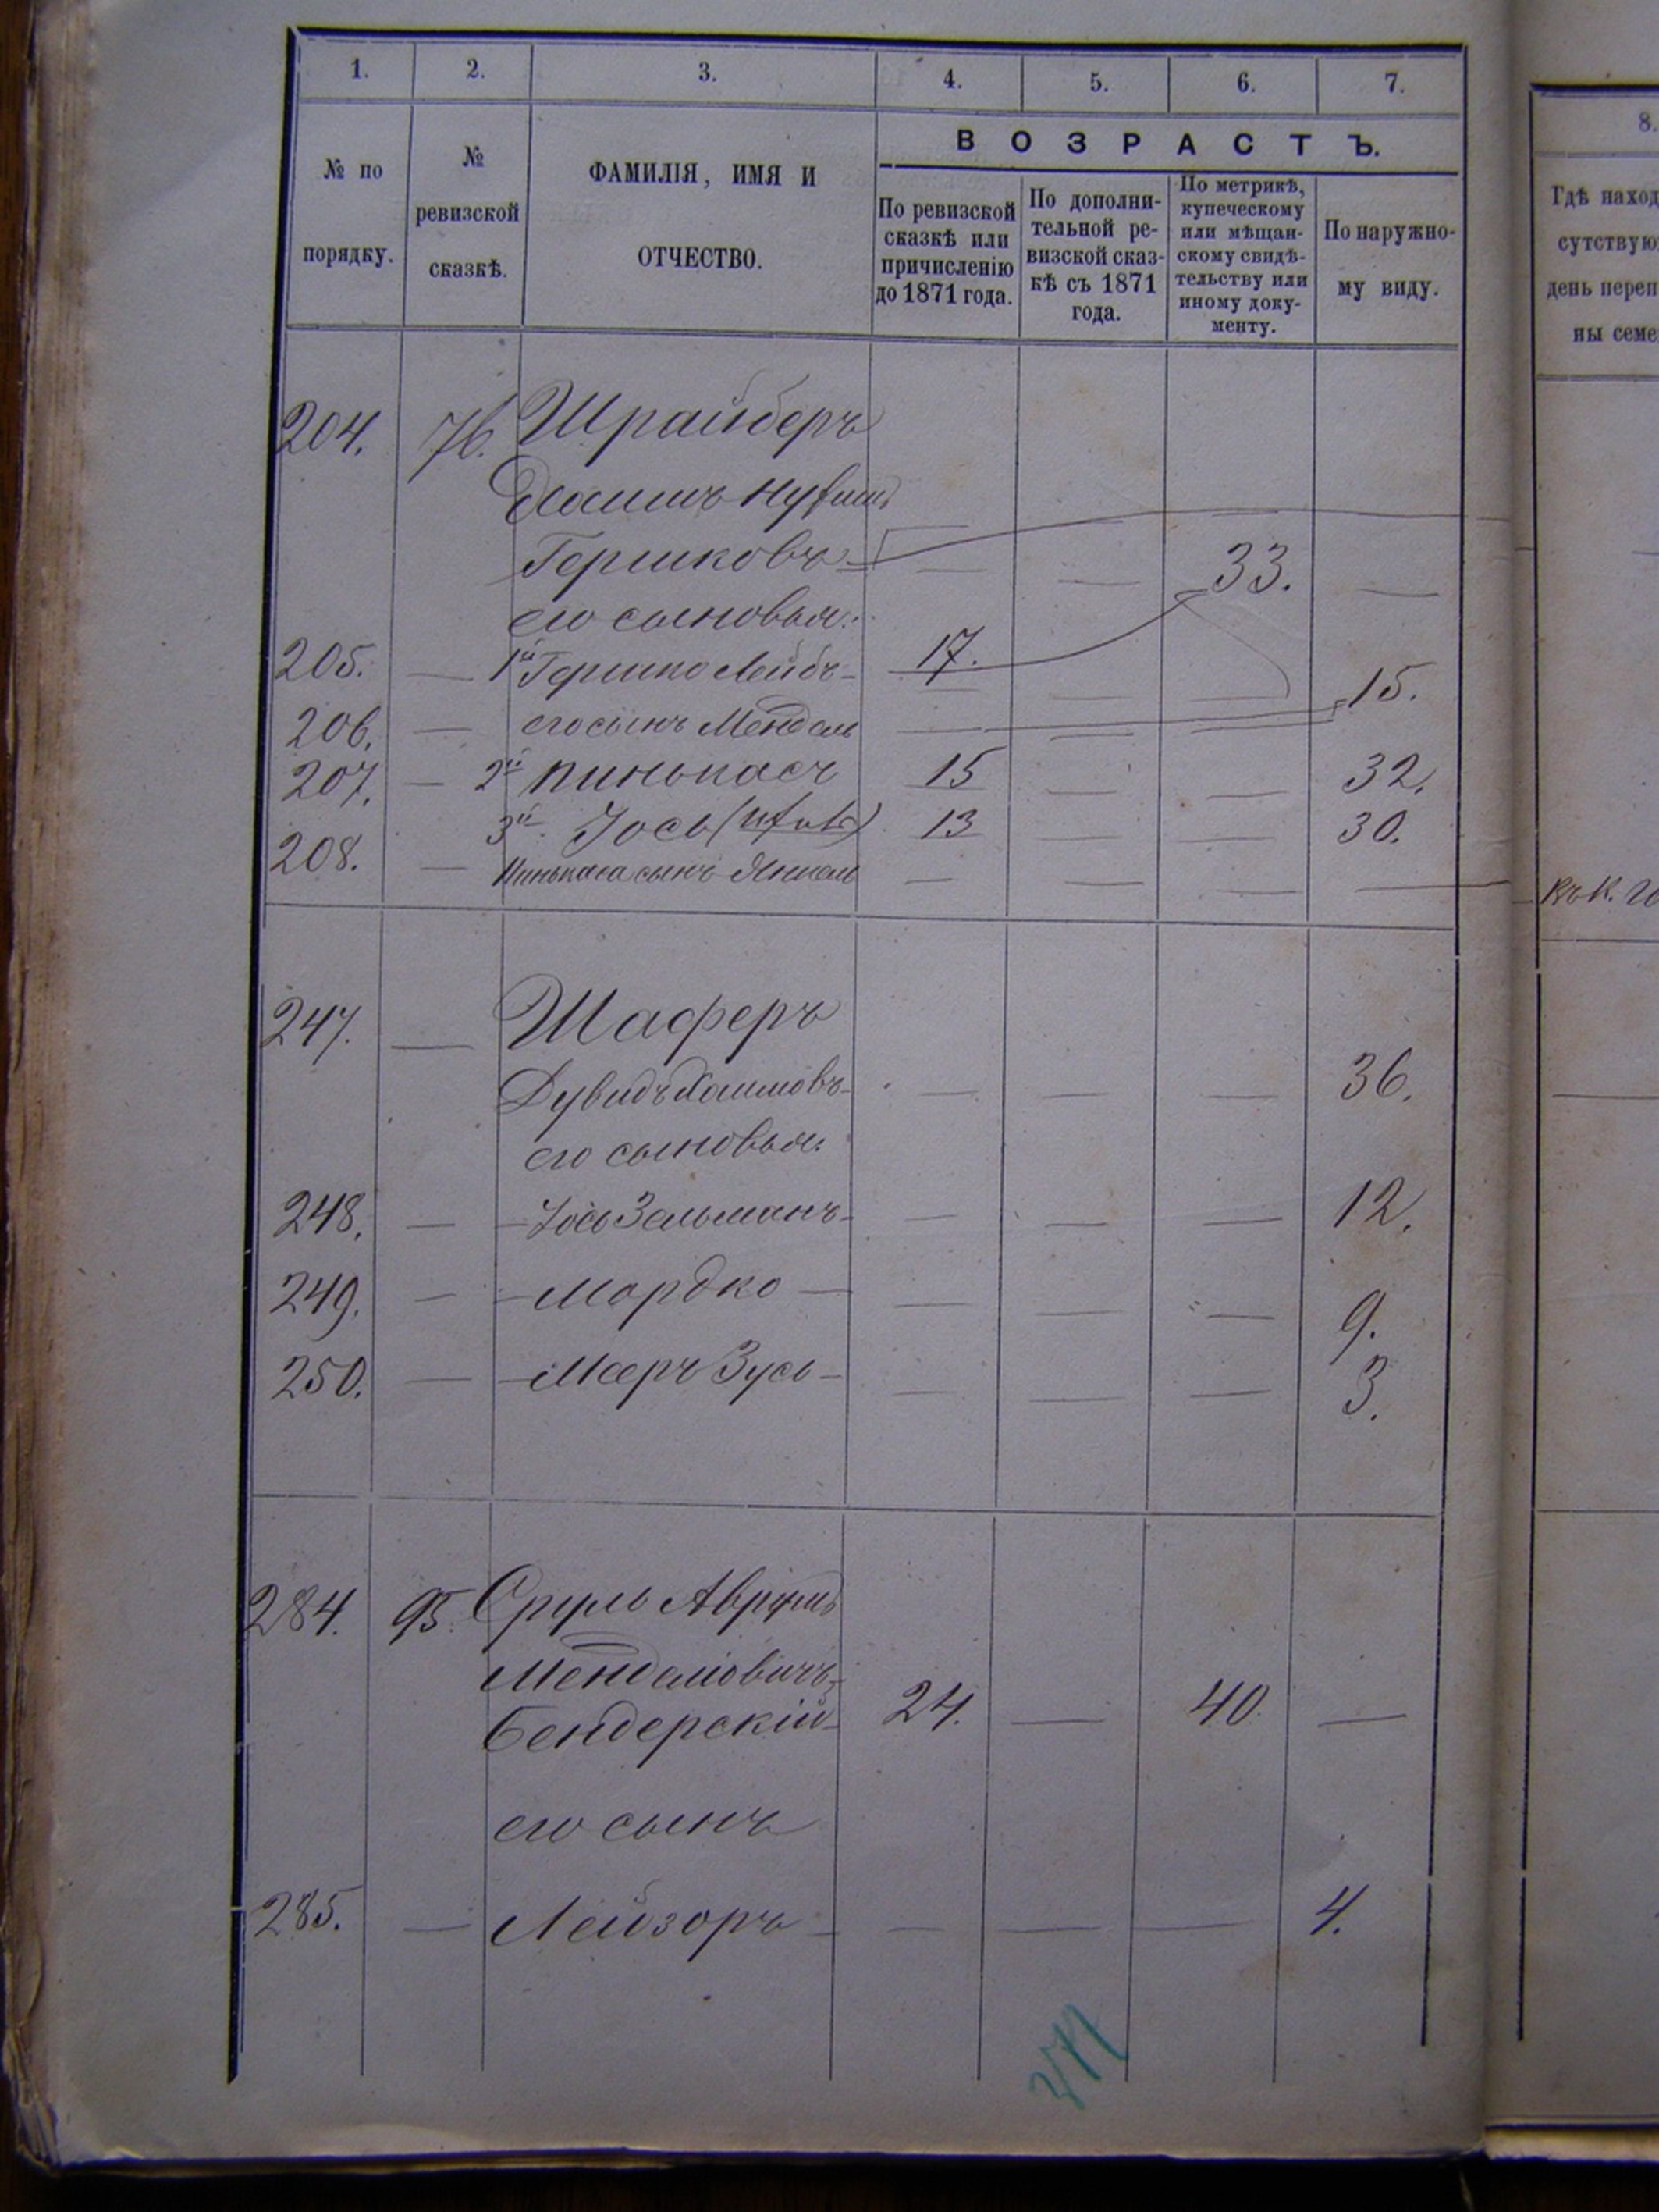 1. 2. 3. 4. 5. 6. 7.
8.
№ по порядку.
№ ревизской сказкѣ.
ФАМИЛІЯ, ИМЯ И ОТЧЕСТВО.
ВОЗРАСТЪ.
По ревизской сказкѣ или причисленію до 1871 года.
По дополнительной ревизской сказкѣ съ 1871 года.
По метрикѣ, купеческому или мѣщанскому свидѣтельству или иному документу.
По наружному виду.
Гдѣ наход
сутствую
день переп
ны семе
204. 76. Шрайберъ
Хаимъ
Гершковъ — — 33. —
его сыновья:
205. — 1й Гершко Лейбъ — 17. — —
206. — его сынъ Мендель — — — 15.
207. — 2й Пинькасъ 15 — — 32.
3й Іось 13 — — 30.
208. — Пинькаса сынъ Янкель — — — —
къ К.
247. — Шаферъ
Дувидъ Хаимовъ — — — 36.
его сыновья:
248. — Іось Зельманъ — — — 12.
249. — Мордко — — — — 9.
250. — Мееръ Зусь — — — — 3.
284. 95. Сруль Аврумъ
Менделіовичъ
Бендерскій 24. — 40. —
его сынъ
285. — Лейзоръ — — — — 4.